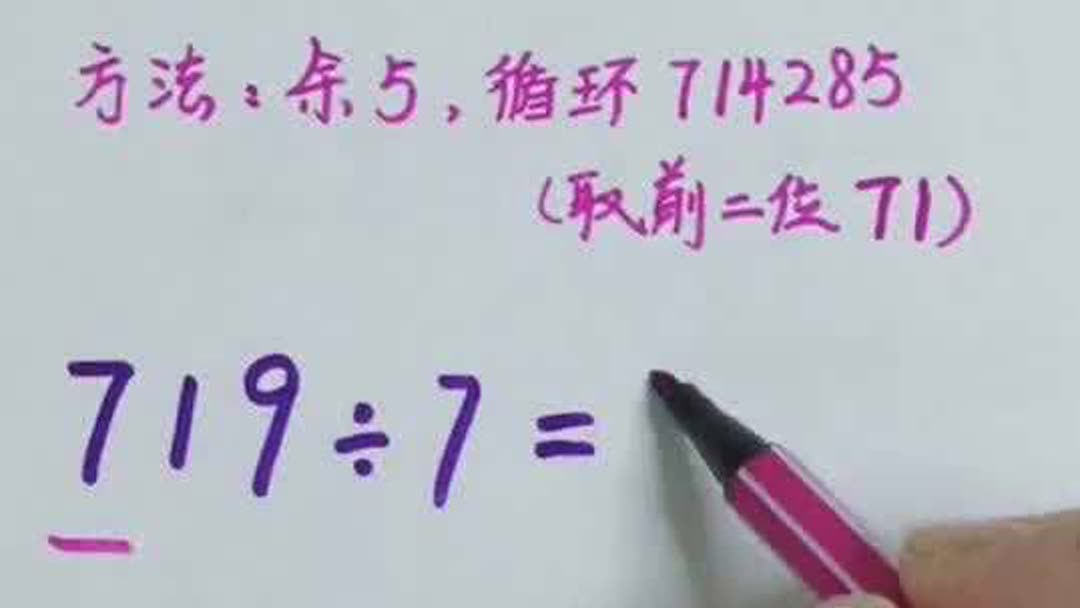 方法：余5，循环714285
（取前二位71）
719÷7=